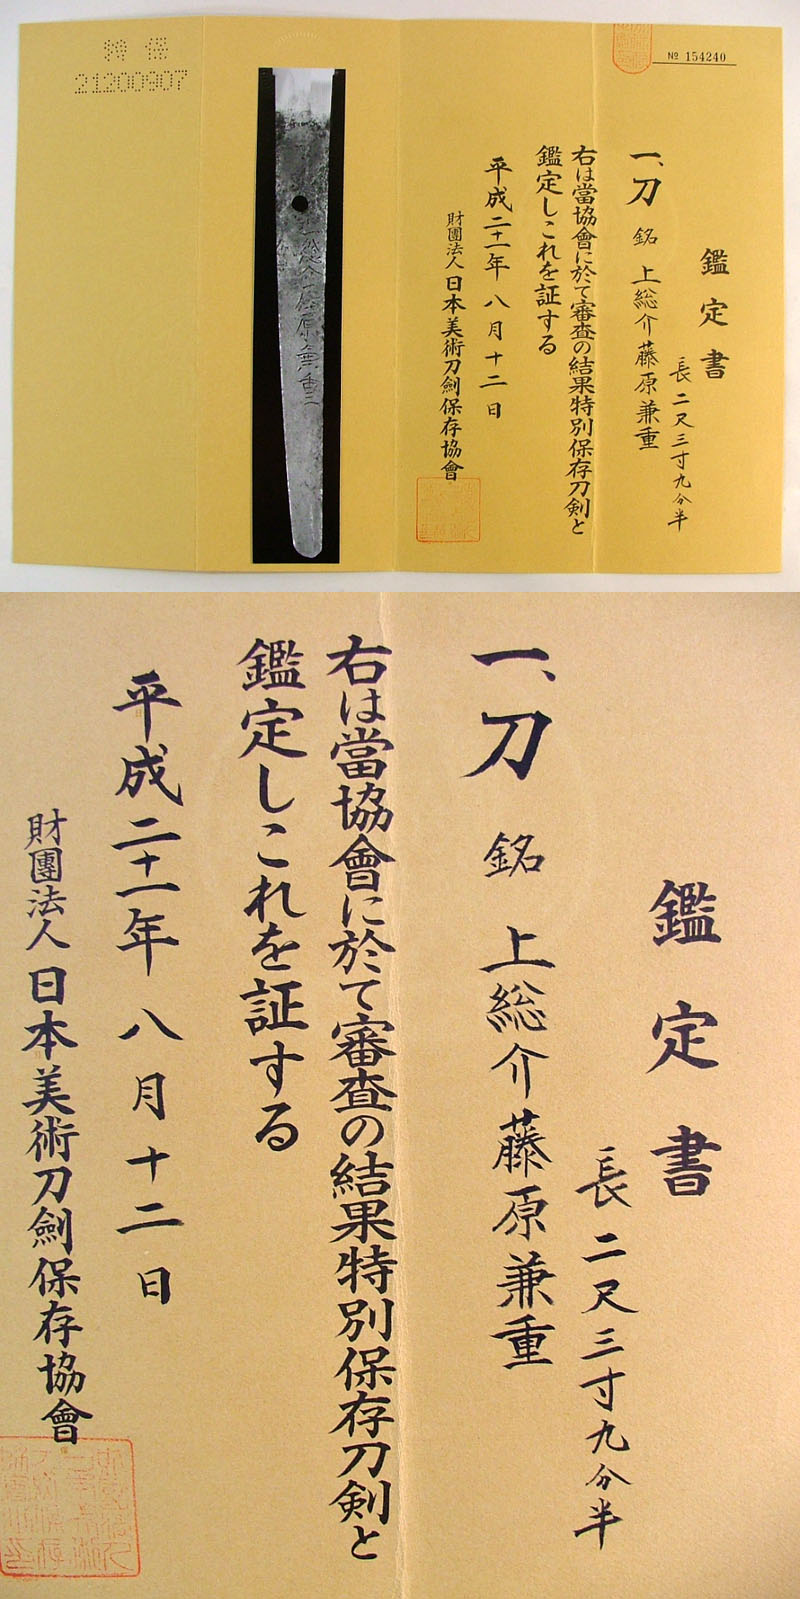 特保
21200907
№ 154240
鑑定書
一、刀 銘 上総介藤原兼重
長二尺三寸九分半
右は當協會に於て審査の結果特別保存刀剣と
鑑定しこれを証する
平成二十一年八月十二日
財團法人日本美術刀劍保存協會
鑑定書
長二尺三寸九分半
一、刀 銘 上総介藤原兼重
右は當協會に於て審査の結果特別保存刀剣と
鑑定しこれを証する
平成二十一年八月十二日
財團法人日本美術刀劍保存協會